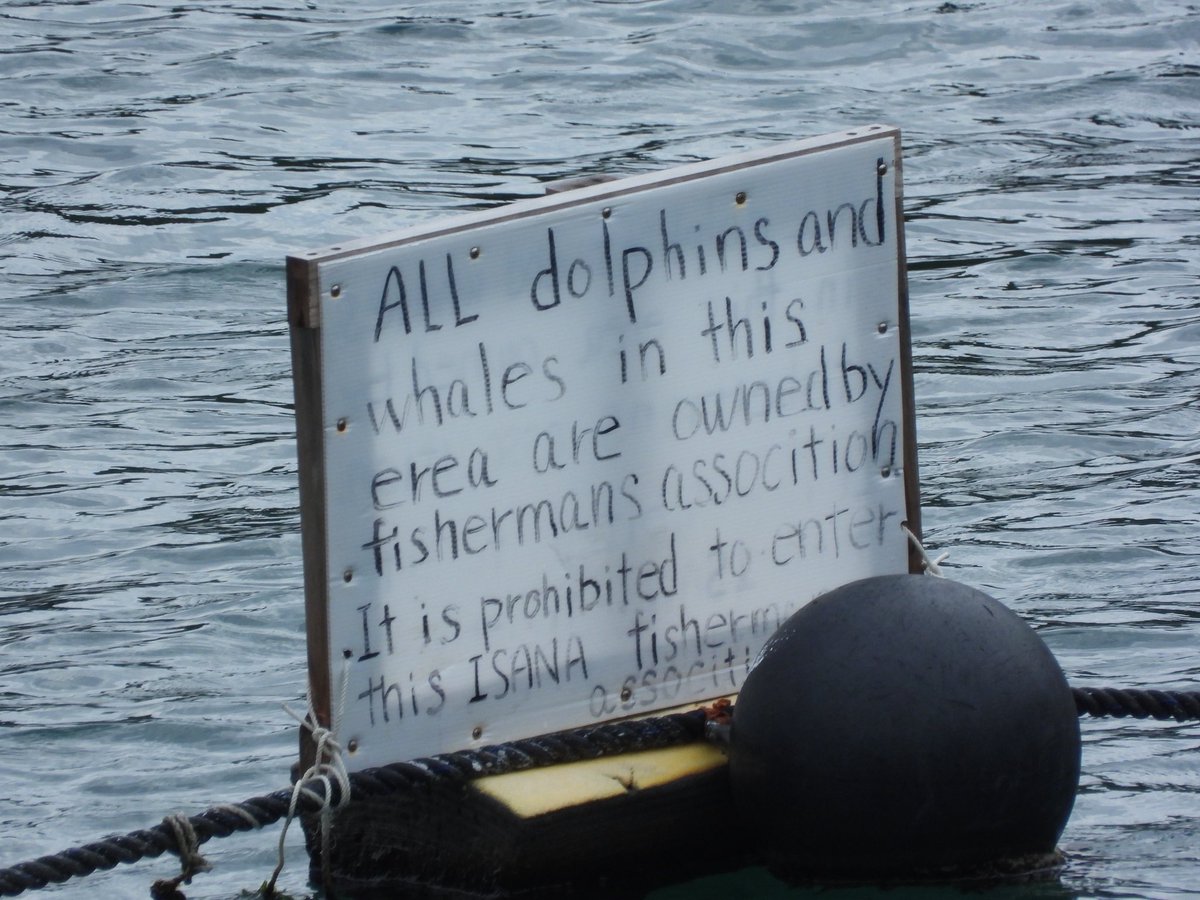 ALL dolphins and
whales in this
erea are owned by
fishermans assocition
It is prohibited to enter
this ISANA